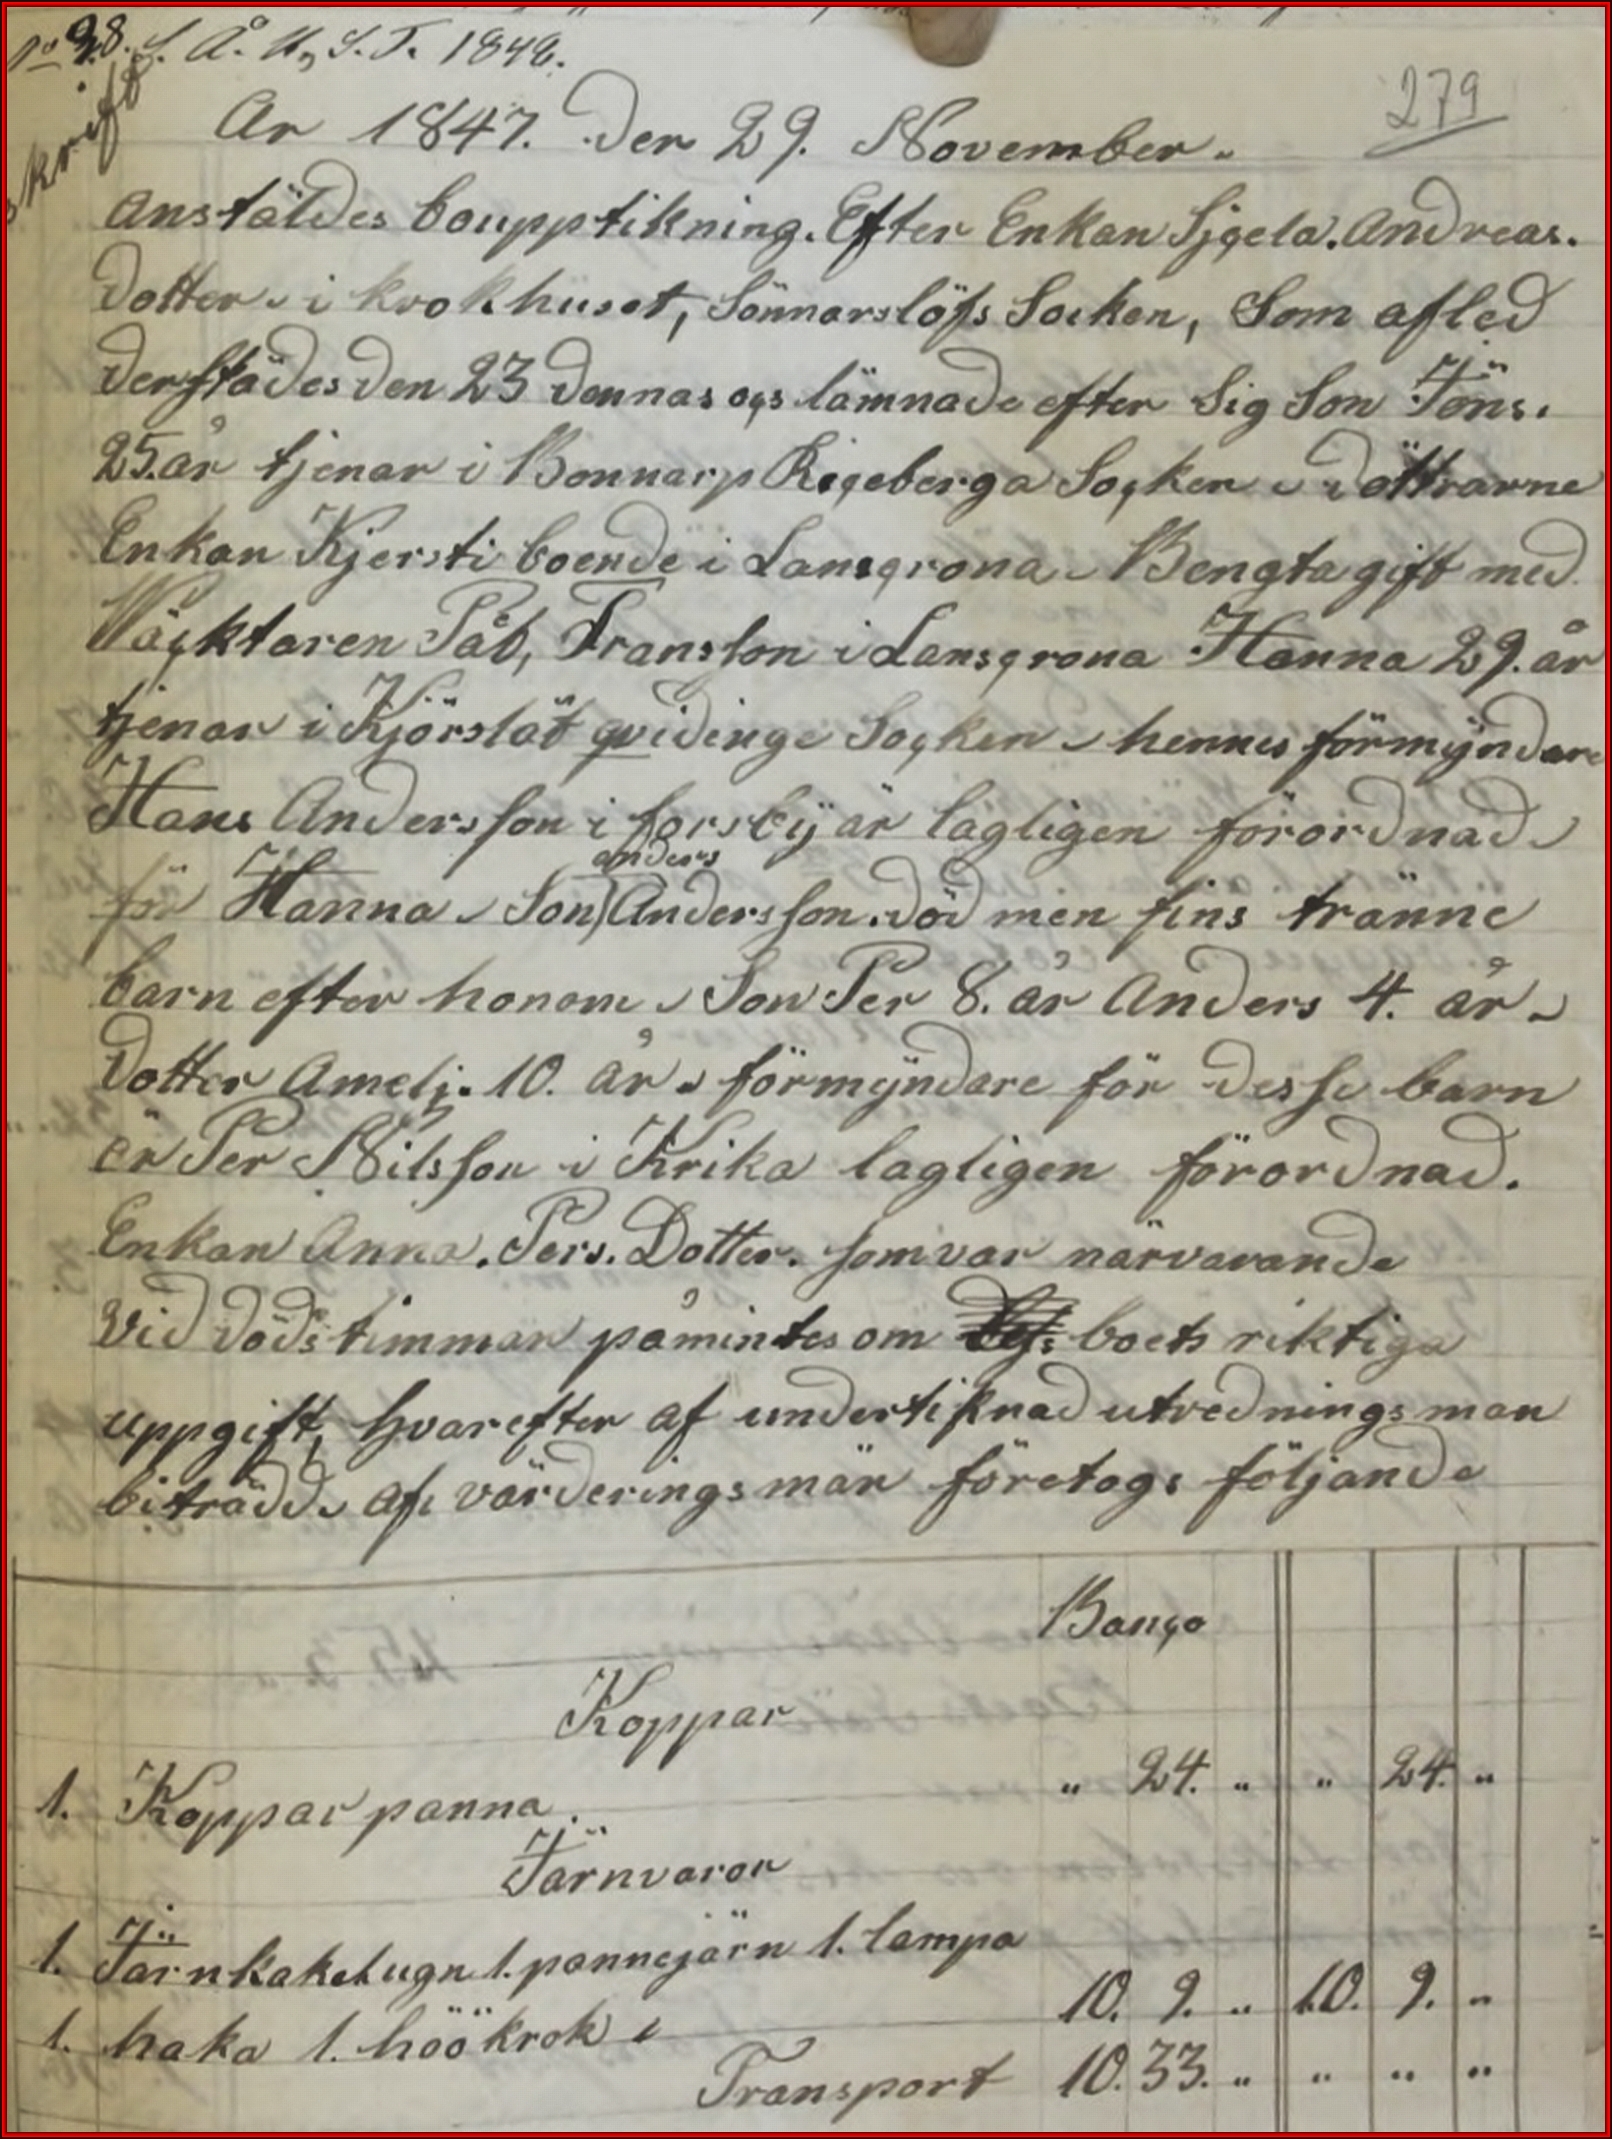 No 98. S. Å. U, S. T. 1848.
skrift
279
Ar 1847. Den 29. November.
Anstäldes boupptikning. Efter Enkan Sjgela. Andreas.
dotter. i krokhuset, Sönnarslöfs Socken, Som afled
derstädes den 23 dennas ocs lämnade efter Sig Son Jöns.
25. år tjenar i Bonnarp Riseberga Socken döttrarne
Enkan Kjersti boende i Lanscrona Bengta gift med
Väcktaren Påb, Fransson i Lanscrona Hanna 29. år
tjenar i Kjörslät qvidinge Socken hennes förmÿndare
Hans Andersson i forsbÿ är lagligen förordnad
för Hanna Son Anders Andersson. död men fins tränne
barn efter honom Son Per 8. år Anders 4. år
Dotter Amelj. 10. år förmÿndare för desse barn
är Per Nilsson i Krika lagligen förordnad.
Enkan Anna. Pers. Dotter. som var närvarande
Vid dödstimman påmintes om boets riktiga
uppgift, hvarefter af undertiknad utredningsman
biträdde af värderingsmän företogs följande
Banco
Koppar
1. Kopparpanna. " 24. " " 24. "
Järnvaror
1. Järnkakelugn 1. pannejärn 1. lampa
1. haka 1. höökrok 10. 9. " 10. 9. "
Transport 10. 33. " " " "